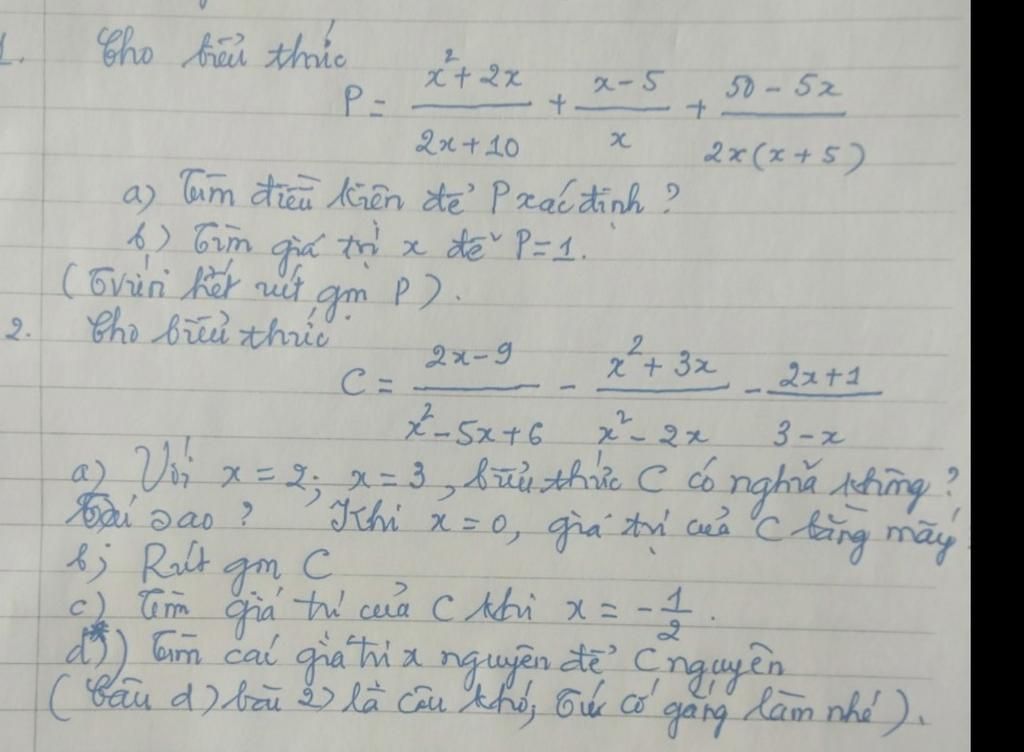 1. Cho biểu thức
P = \frac{x^2+2x}{2x+10} + \frac{x-5}{x} + \frac{50-5x}{2x(x+5)}
a) Tìm điều kiện để P xác định?
b) Tìm giá trị x để P=1.
(Trước hết rút gọn P).
2. Cho biểu thức
C = \frac{2x-9}{x^2-5x+6} - \frac{x^2+3x}{x^2-2x} - \frac{2x+1}{3-x}
a) Với x=2; x=3, biểu thức C có nghĩa không?
Tại sao? Khi x=0, giá trị của C bằng mấy
b; Rút gọn C
c) Tìm giá trị của C khi x = -\frac{1}{2}.
d*)) Tìm các giá trị x nguyên để C nguyên
(Câu d) bài 2) là câu khó, cố gắng làm nhé).